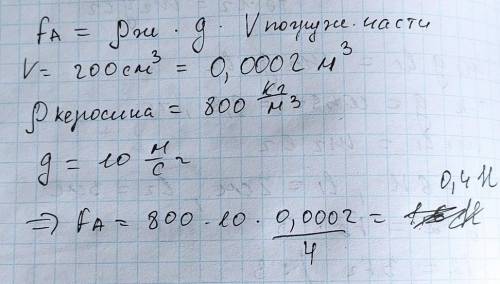 fА = ρж · g · V погруж. части
V = 200 см³ = 0,0002 м³
ρ керосина = 800 кг/м³
g = 10 м/с²
0,4 Н
⇒ fА = 800 · 10 · 0,0002/4 =